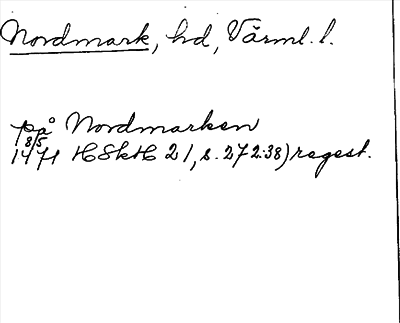 Nordmark, hd, Värml. l.
på Nordmarken
18/5
1471 HSkH 21, s. 272:38) regest.